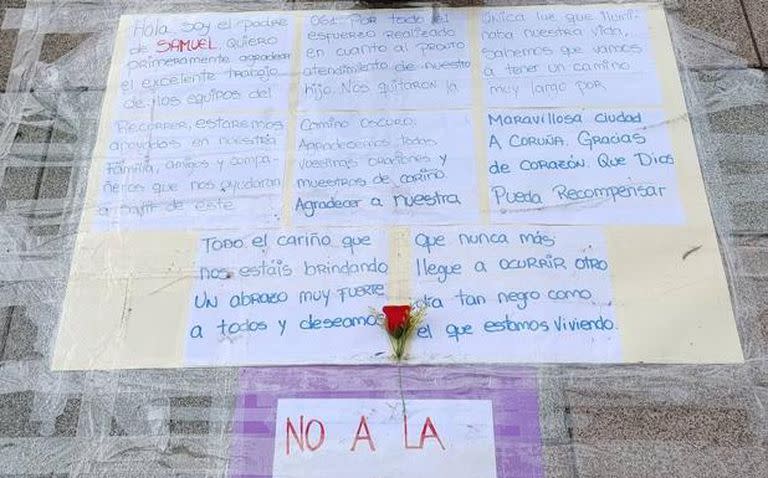 Hola soy el padre
de SAMUEL. QUIERO
primeramente agradecer
el excelente trabajo
de los equipos del
061. POR todo el
esfuerzo realizado
en cuanto al pronto
atendimiento de nuestro
hijo. Nos quitaron la
única luz que ilumi-
naba nuestra vida,
sabemos que vamos
a tener un camino
muy largo por
RECORRER, estaremos
apoyados en nuestra
Familia, amigos y compa-
ñeros que nos ayudaran
a partir de este
Camino oscuro.
Agradecemos todas
vuestras oraciones y
muestras de cariño.
Agradecer a nuestra
MARAVILLOSA CIUDAD
A CORUÑA. GRACIAS
DE CORAZÓN. QUE DIOS
PUEDA RECOMPENSAR
TODO el cariño que
nos estáis brindando
UN ABRAZO MUY FUERTE
a todos y deseamos
QUE nunca más
llegue a OCURRIR OTRO
día tan negro como
el que estamos viviendo.
NO A LA